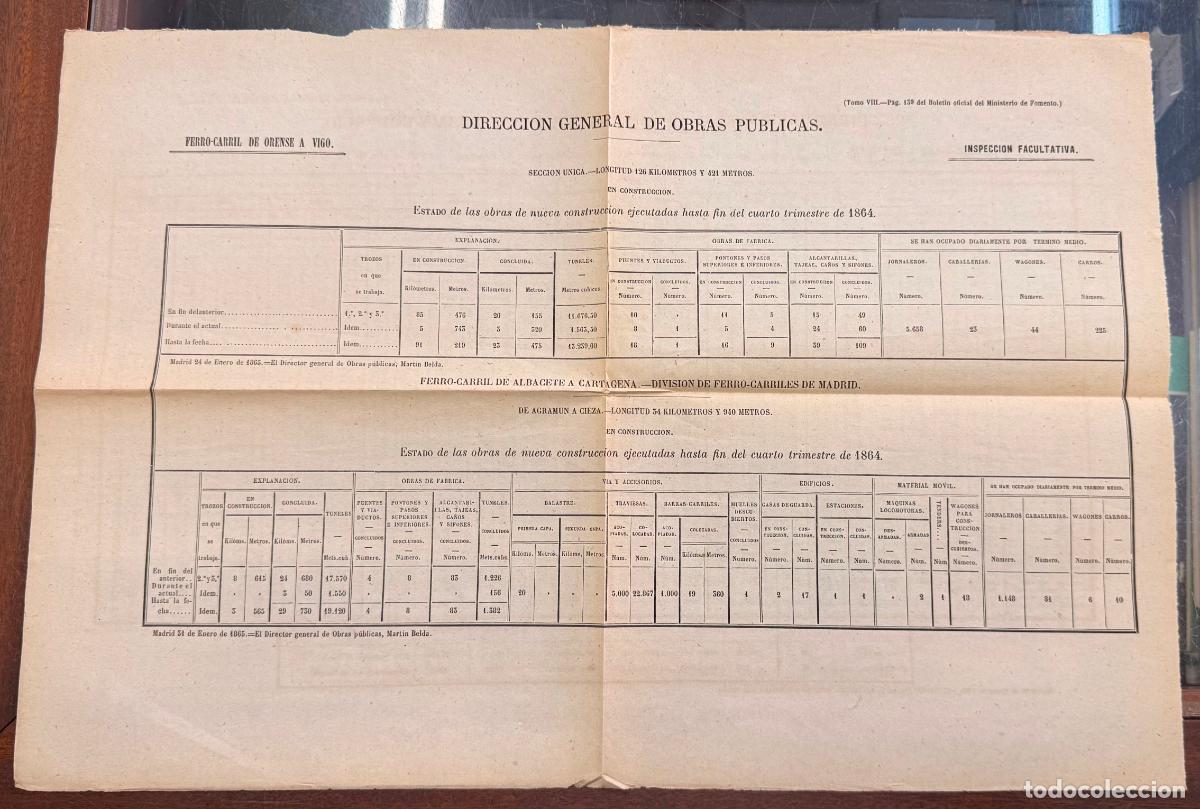 (Tomo VIII.—Pág. 139 del Boletin oficial del Ministerio de Fomento.)
DIRECCION GENERAL DE OBRAS PUBLICAS.
FERRO-CARRIL DE ORENSE A VIGO.
INSPECCION FACULTATIVA.
SECCION UNICA.—LONGITUD 126 KILOMETROS Y 421 METROS.
EN CONSTRUCCION.
ESTADO de las obras de nueva construccion ejecutadas hasta fin del cuarto trimestre de 1864.
EXPLANACION. OBRAS DE FABRICA. SE HAN OCUPADO DIARIAMENTE POR TERMINO MEDIO.
TROZOS en que se trabaja. EN CONSTRUCCION. CONCLUIDA. TUNELES. PUENTES Y VIADUCTOS. PONTONES Y PASOS SUPERIORES E INFERIORES. ALCANTARILLAS, TAJEAS, CAÑOS Y SIFONES. JORNALEROS. CABALLERIAS. WAGONES. CARROS.
EN CONSTRUCCION CONCLUIDOS. EN CONSTRUCCION CONCLUIDOS. EN CONSTRUCCION CONCLUIDOS.
Kilómetros. Metros. Kilómetros. Metros. Metros cúbicos. Número. Número. Número. Número. Número. Número. Número. Número. Número. Número.
En fin del anterior 1.°, 2.° y 3.° 85 476 20 155 11.676,50 10 » 11 5 15 49
Durante el actual Idem. 5 743 3 320 1.563,50 8 1 5 4 24 60 5.658 23 44 225
Hasta la fecha Idem. 91 219 23 475 13.239,00 18 1 16 9 39 109
Madrid 24 de Enero de 1865.=El Director general de Obras públicas, Martin Belda.
FERRO-CARRIL DE ALBACETE A CARTAGENA.—DIVISION DE FERRO-CARRILES DE MADRID.
DE AGRAMUN A CIEZA.—LONGITUD 54 KILOMETROS Y 940 METROS.
EN CONSTRUCCION.
ESTADO de las obras de nueva construccion ejecutadas hasta fin del cuarto trimestre de 1864.
EXPLANACION. OBRAS DE FABRICA. VIA Y ACCESORIOS. EDIFICIOS. MATERIAL MÓVIL. SE HAN OCUPADO DIARIAMENTE POR TERMINO MEDIO.
TROZOS en que se trabaja. EN CONSTRUCCION. CONCLUIDA. TUNELES PUENTES Y VIADUCTOS. PONTONES Y PASOS SUPERIORES E INFERIORES. ALCANTARILLAS, TAJEAS, CAÑOS Y SIFONES. TUNELES. BALASTRE. TRAVIESAS. BARRAS-CARRILES. MUELLES DESCUBIERTOS. CASAS DE GUARDA. ESTACIONES. MAQUINAS LOCOMOTORAS. TENDERS. WAGONES PARA CONSTRUCCION JORNALEROS CABALLERIAS. WAGONES CARROS.
CONCLUIDOS CONCLUIDOS. CONCLUIDOS. CONCLUIDOS PRIMERA CAPA. SEGUNDA CAPA. ACOPIADAS. COLOCADAS. ACOPIADAS. COLOCADAS. CONCLUIDOS EN CONSTRUCCION. CONCLUIDAS. EN CONSTRUCCION. CONCLUIDAS. DESARMADAS. ARMADAS DESCUBIERTOS.
Kilóms. Metros. Kilóms. Metros. Mets.cub. Número. Número. Número. Mets.cubs. Kilóms. Metros. Kilóms. Metros. Núm. Núm. Núm. Kilóms Metros. Número. Núm. Núm. Núm. Núm. Núm. Núm. Núm Número. Número. Número. Número. Núm.
En fin del anterior.. 2.° y 3.° 8 615 24 680 17.570 4 8 83 1.226
Durante el actual.... Idem. » » 3 50 1.550 156 20 » » » 5.000 22.867 1.000 19 360 4 2 17 1 1 » 2 1 18 1.148 81 6 10
Hasta la fecha...... Idem. 3 565 29 730 19.120 4 8 83 1.382
Madrid 31 de Enero de 1865.=El Director general de Obras públicas, Martin Belda.
todocoleccion